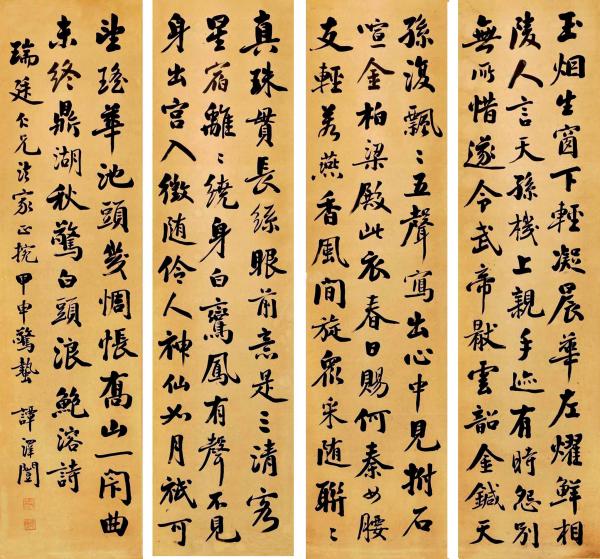 玉烟生窗下輕凝晨華左耀鮮相
陵人言天孫機上親手迹有時怨別
無所惜遂令武帝猒雲韶金鍼天
孫復飄〻五聲寫出心中見拊石
喧金柏梁殿此衣春日賜何秦女腰
支輕若燕香風間旋眾采随聯〻
真珠貫長絲眼前意是三清客
星宿離〻繞身白鸞鳳有聲不見
身出宮入徵随伶人神仙如月祇可
望瑤華池頭幾惆悵喬山一閉曲
未終鼎湖秋驚白頭浪鮑溶詩
瑞廷仁兄法家正捥甲申驚蟄 譚澤闓